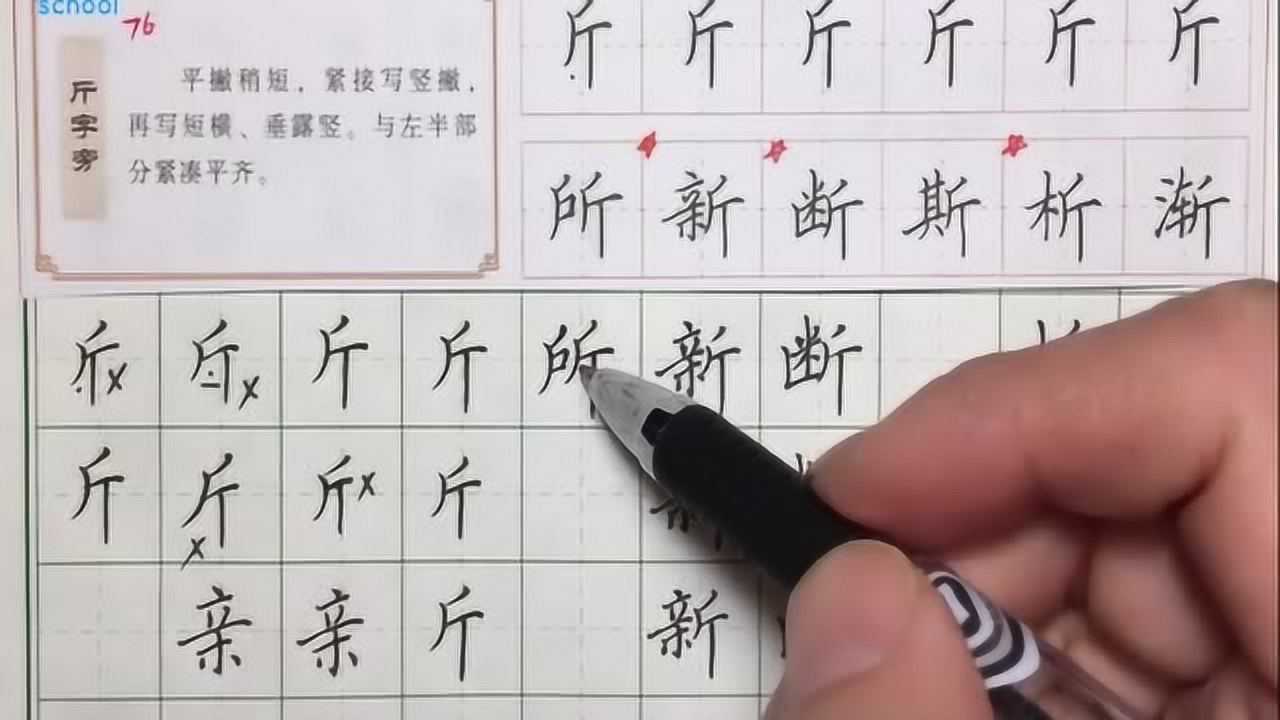 school
76
斤字旁
平撇稍短，紧接写竖撇，
再写短横、垂露竖。与左半部
分紧凑平齐。
斤 斤 斤 斤 斤 斤
所 新 断 斯 析 渐
斤x 斤x 斤 斤 所 新 断
斤 斤x 斤x 斤
亲 亲 斤 新